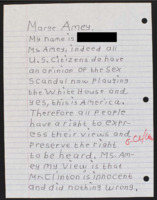 Marge Amey,
My name is
Ms Amey, indeed all
U.S. Citizens do have
an opinion of the Sex
Scandal now Plaging
the White House and
yes, this is America.
Therefore all People
have a right to expr-
ess their views and
Preserve the right
to be heard. MS. Am-
ey my View is that
Mr. Clinton is innocent
and did nothing wrong.